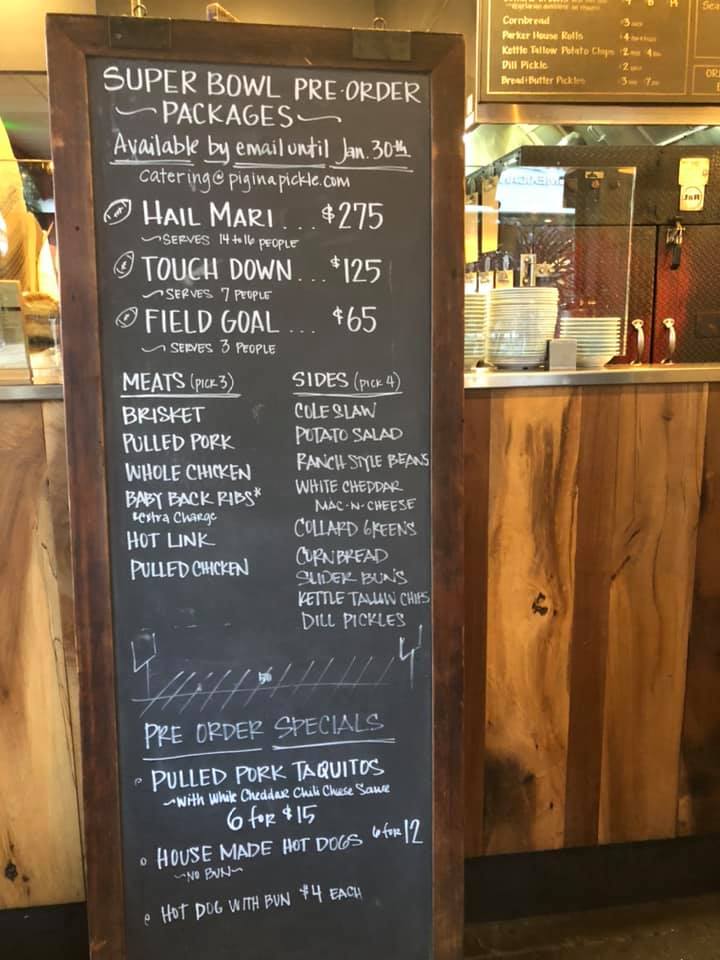 SUPER BOWL PRE-ORDER
PACKAGES
Available by email until Jan. 30th
catering@piginapickle.com
HAIL MARI ... $275
SERVES 14 to 16 PEOPLE
TOUCH DOWN ... $125
SERVES 7 PEOPLE
FIELD GOAL ... $65
SERVES 3 PEOPLE
MEATS (PICK 3)
BRISKET
PULLED PORK
WHOLE CHICKEN
BABY BACK RIBS*
*extra Charge
HOT LINK
PULLED CHICKEN
SIDES (PICK 4)
COLESLAW
POTATO SALAD
RANCH STYLE BEANS
WHITE CHEDDAR
MAC-N-CHEESE
COLLARD GREENS
CORNBREAD
SLIDER BUNS
KETTLE TALLOW CHIPS
DILL PICKLES
50
PRE ORDER SPECIALS
PULLED PORK TAQUITOS
With White Cheddar Chili Cheese Sauce
6 for $15
HOUSE MADE HOT DOGS 6 for 12
NO BUN
HOT DOG WITH BUN $4 EACH
Cornbread 3
Parker House Rolls 4
Kettle Tallow Potato Chips 2 4
Dill Pickle 2
Bread+Butter Pickles 3 7
J&R